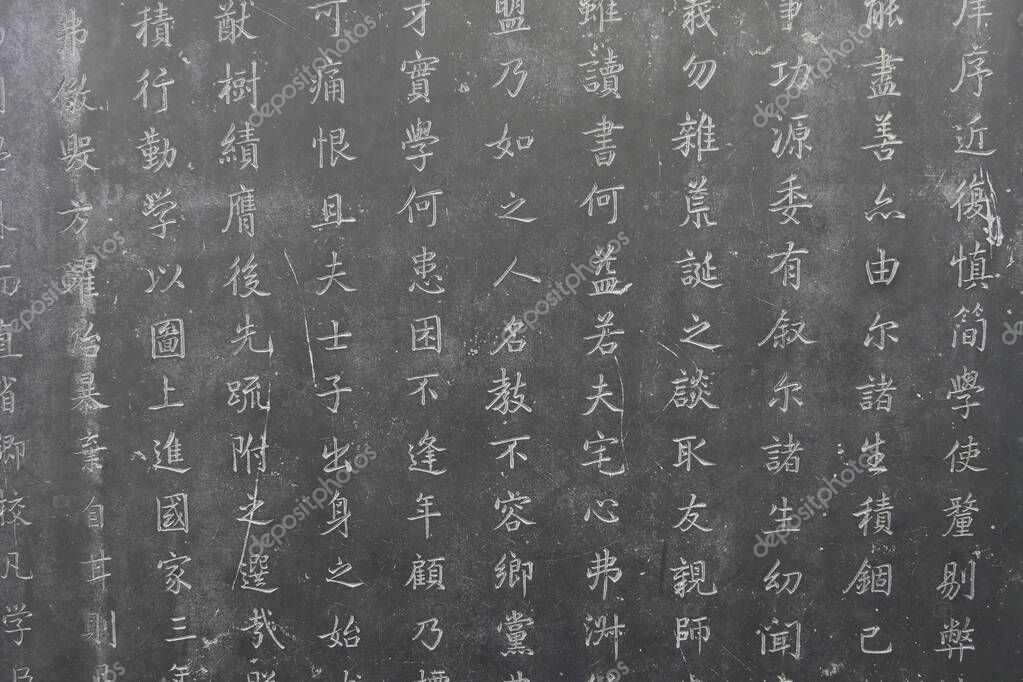 庠序近復慎簡學使釐剔弊
能盡善亦由尔諸生積錮已
事功源委有叙尔諸生幼聞
義勿雜荒誕之談取友親師
雖讀書何益若夫宅心弗淑
盟乃如之人名教不容鄉黨
才實學何患困不逢年顧乃
可痛恨且夫士子出身之始
猷樹績膺後先疏附之選哉
積行勤学以圖上進國家三年
弗儆毀方躍冶暴棄自甘則
外而直省鄉校凡学
depositphotos